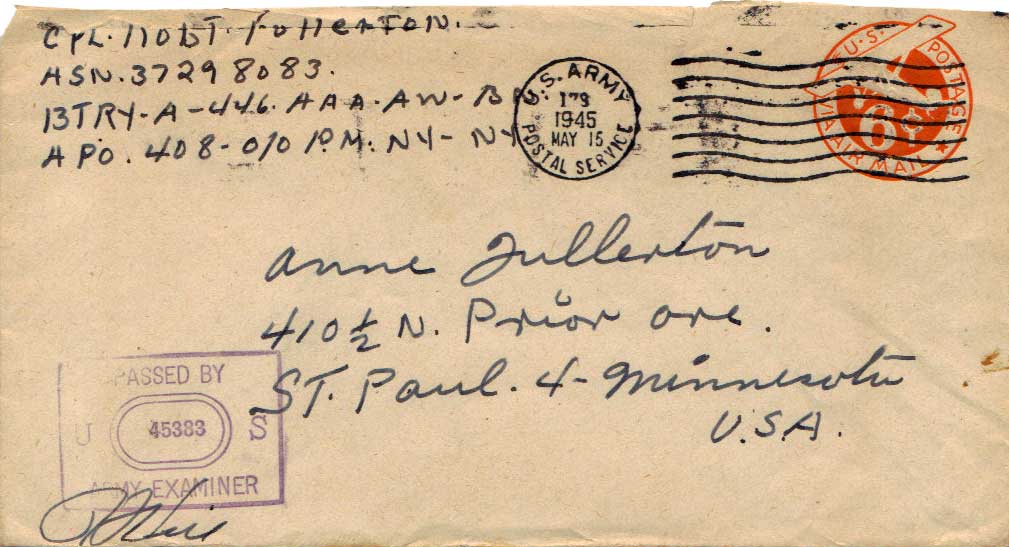 Cpl. Robt. Fullerton.
ASN. 37298083.
BTRY-A-446. AAA. AW-B
APO. 408-C/O P.M: NY-NY
U.S. ARMY
179
1945
MAY 15
POSTAL SERVICE
U.S. POSTAGE
6¢
VIA AIR MAIL
Anne Fullerton
410 ½ N. Prior Ave.
ST. Paul. 4-Minnesota
U.S.A.
PASSED BY
U 45383 S
ARMY EXAMINER